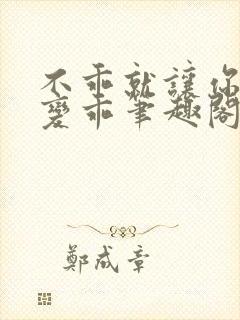 不乖就讓你
變乖筆趣閣
鄭成章